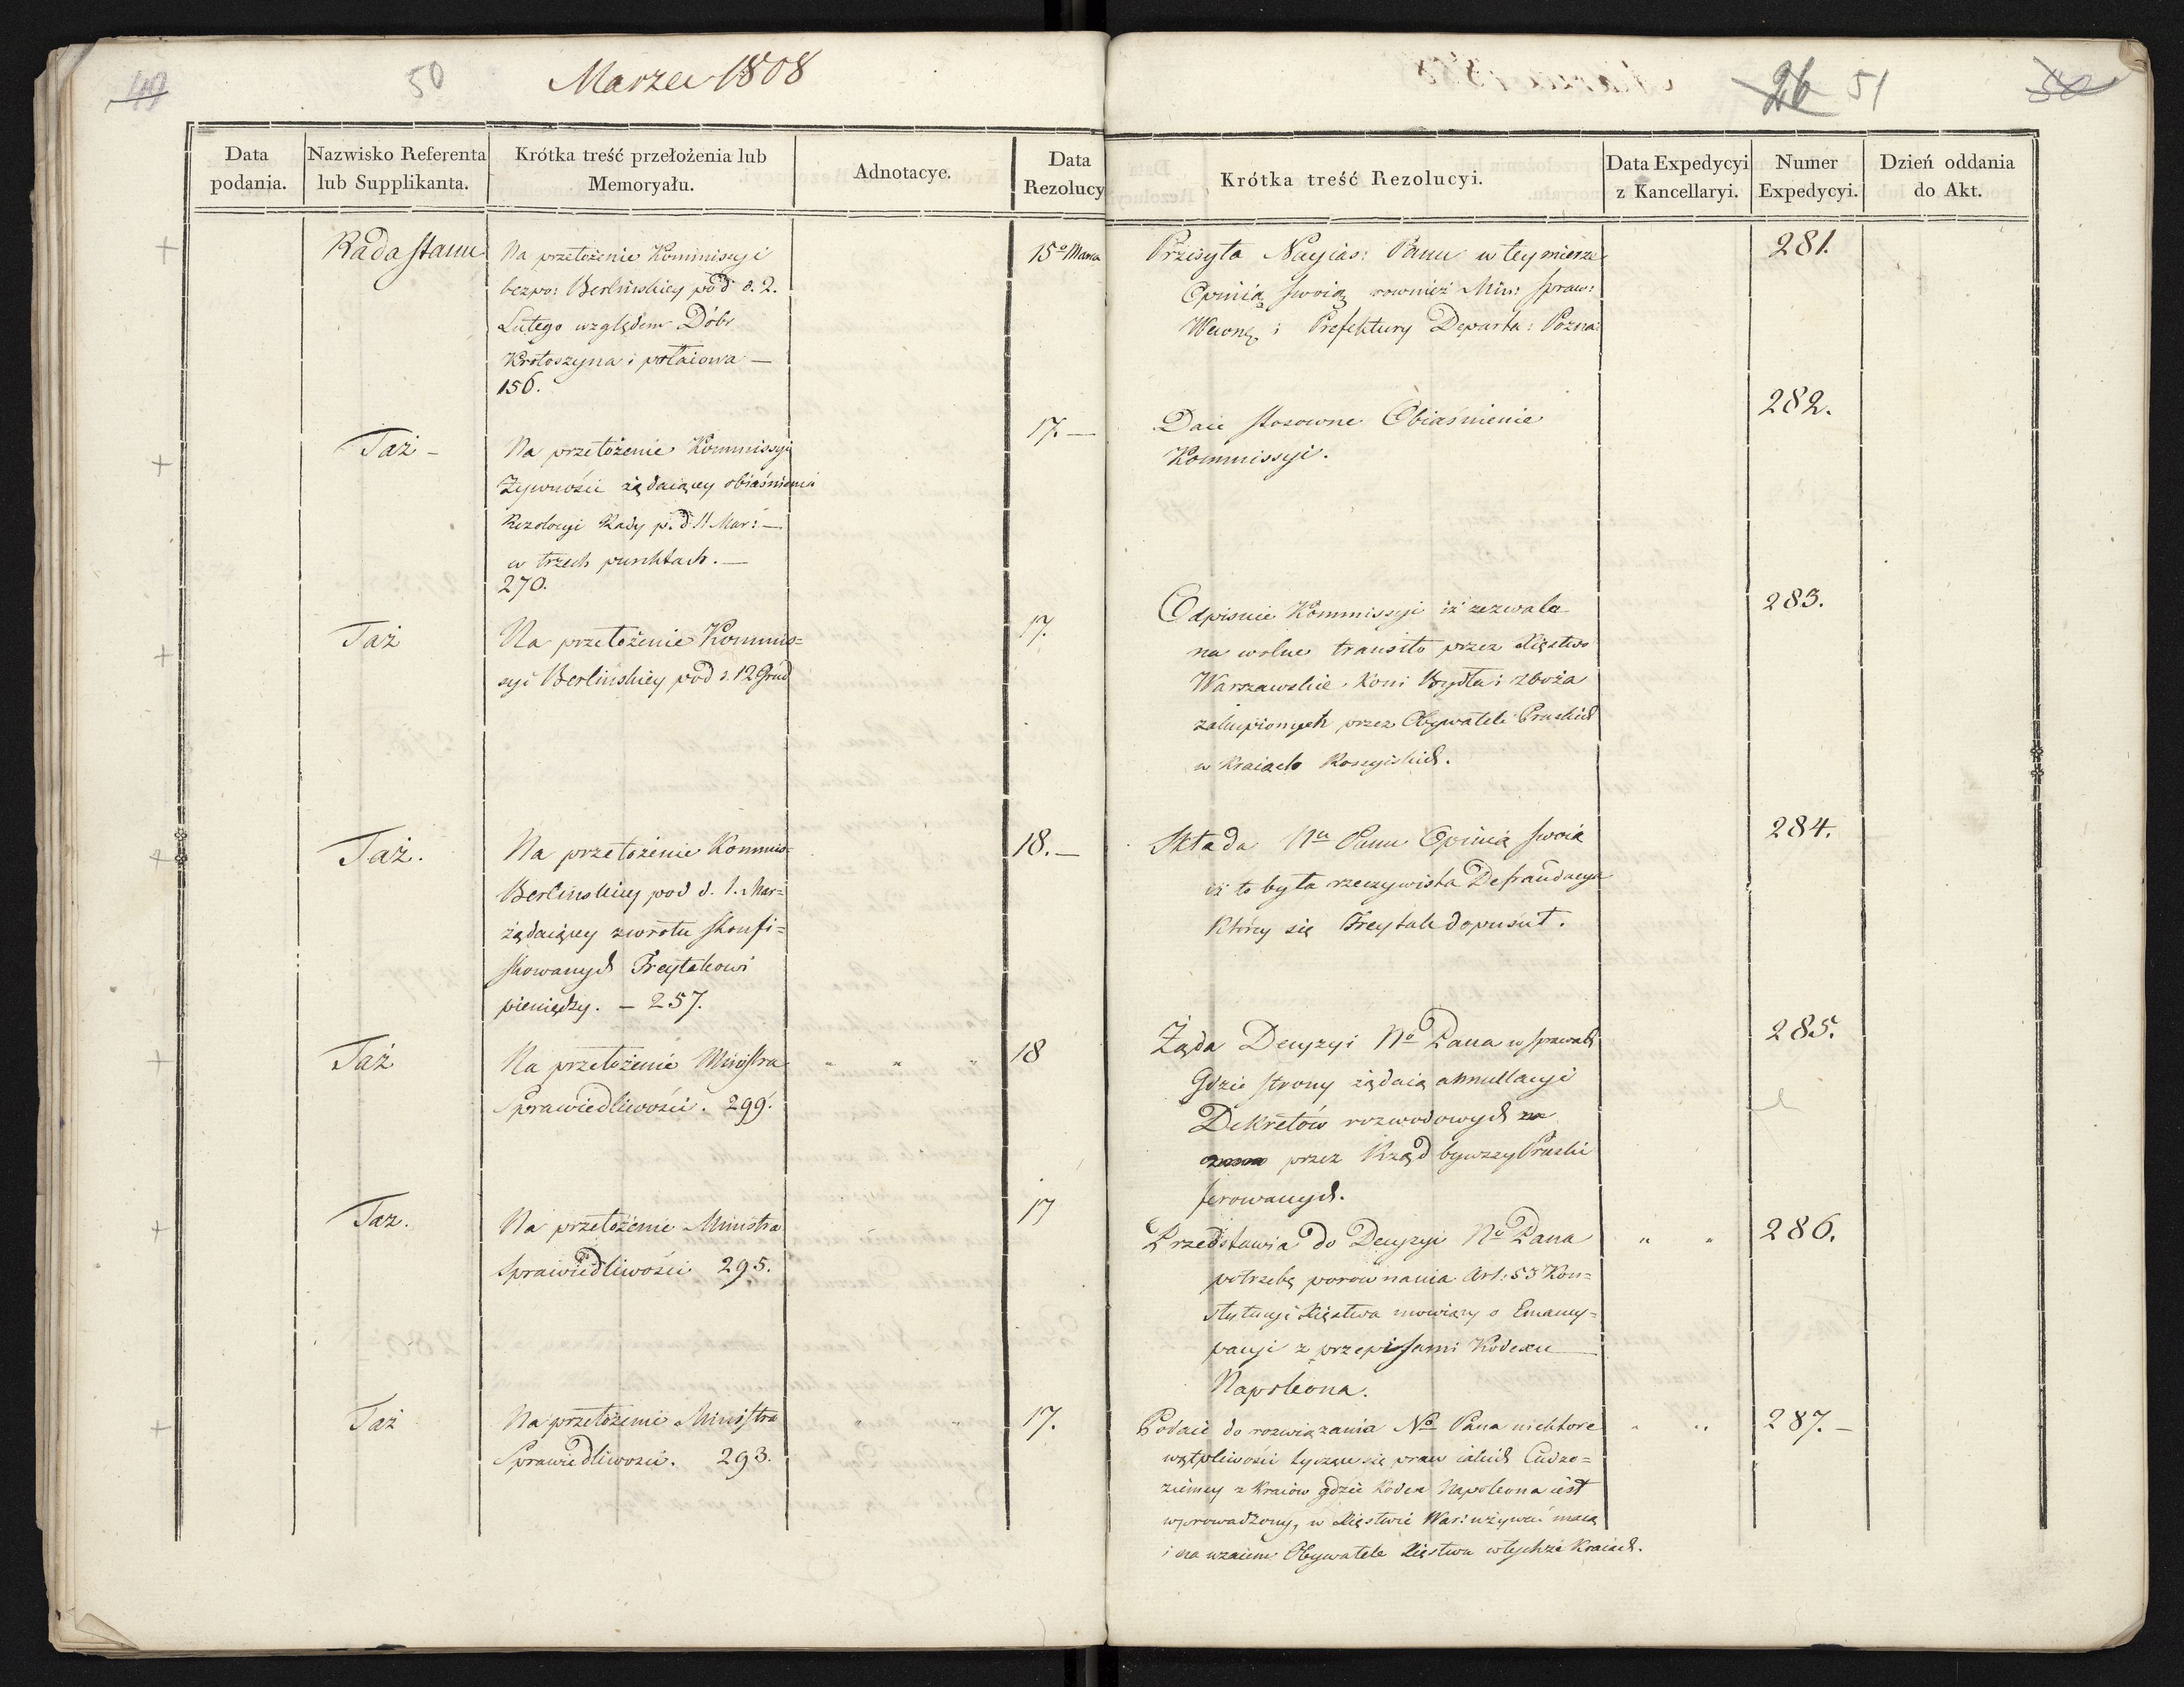 49 50 Marzec 1808
Data podania.
Nazwisko Referenta lub Supplikanta.
Krótka treść przełożenia lub Memoryału.
Adnotacye.
Data Rezolucy
Rada Stanu
Na przełożenie Kommissyi
bezpo: Berlińskiey pod d. 2.
Lutego względem Dóbr
Krotoszyna i
156.
15º Marca
Taż –
Na przełożenie Kommissyi
Żywności żądaiącey obiaśnienia
Rezolucyi Rady p. d. 11 Mar: –
w trzech punktach. –
270.
17. –
Taż
Na przełożenie Kommis=
syi Berlińskiey pod d. 12 Grud
17.
Taż.
Na przełożenie Kommis=
Berlinskiey pod d. 1. Mar=
żądaiącey zwrotu skonfi=
skowanych Freytakowi
pieniędzy. – 257.
18. –
Taż
Na przełożenie Ministra
Sprawiedliwości. 299.
" " "
18
Taz.
Na przełożenie Ministra
Sprawiedliwości 295.
17
Taż
Na przełożenie Ministra
Sprawiedliwosci. 293.
" "
17.
26 51 50
Krótka treść Rezolucyi.
Data Expedycyi z Kancellaryi.
Numer Expedycyi.
Dzień oddania do Akt.
Przisyła Nayias: Panu w tey mierze
Opinią swoią rownież Min: spraw:
Wewnę, i Prefektury Departa: Pozna:
281.
Daie stosowne Obiaśnienie
Kommissyi.
282.
Odpisuie Kommissyi iż zezwala
na wolne transito przez Xięstwo
Warszawskie Koni Bydła i zboża
zakupionych przez Obywateli Pruskich
w Kraiach Rossyiskich.
283.
Składa Nu Panu Opinią swoią
iż to była rzeczywista Defraudacya
Któréy się Freytak dopuscił.
284.
Żąda Decyzyi No Pana w sprawach
Gdzie strony żądaią annullacyi
Dekretów rozwodowych
przez Rząd bywszy Pruski
ferowanych.
285.
Przedstawia do Decyzyi No Pana
potrzebę porownania Art: 53 Kon=
stytucyi Xięstwa mowiący o Emancy=
pacyi z przepisami Kodexu
Napoleona.
" "
286.
Podaie do rozwiązania No Pana niektore
wątpliwości tyczące się praw iakich Cudzo=
ziemcy z Kraiów gdzie Kodex Napoleona iest
wprowadzony, w Xięstwie War: używać maią
i na wzaiem Obywatele Xięstwa w tychże Kraiach.
" "
287. –